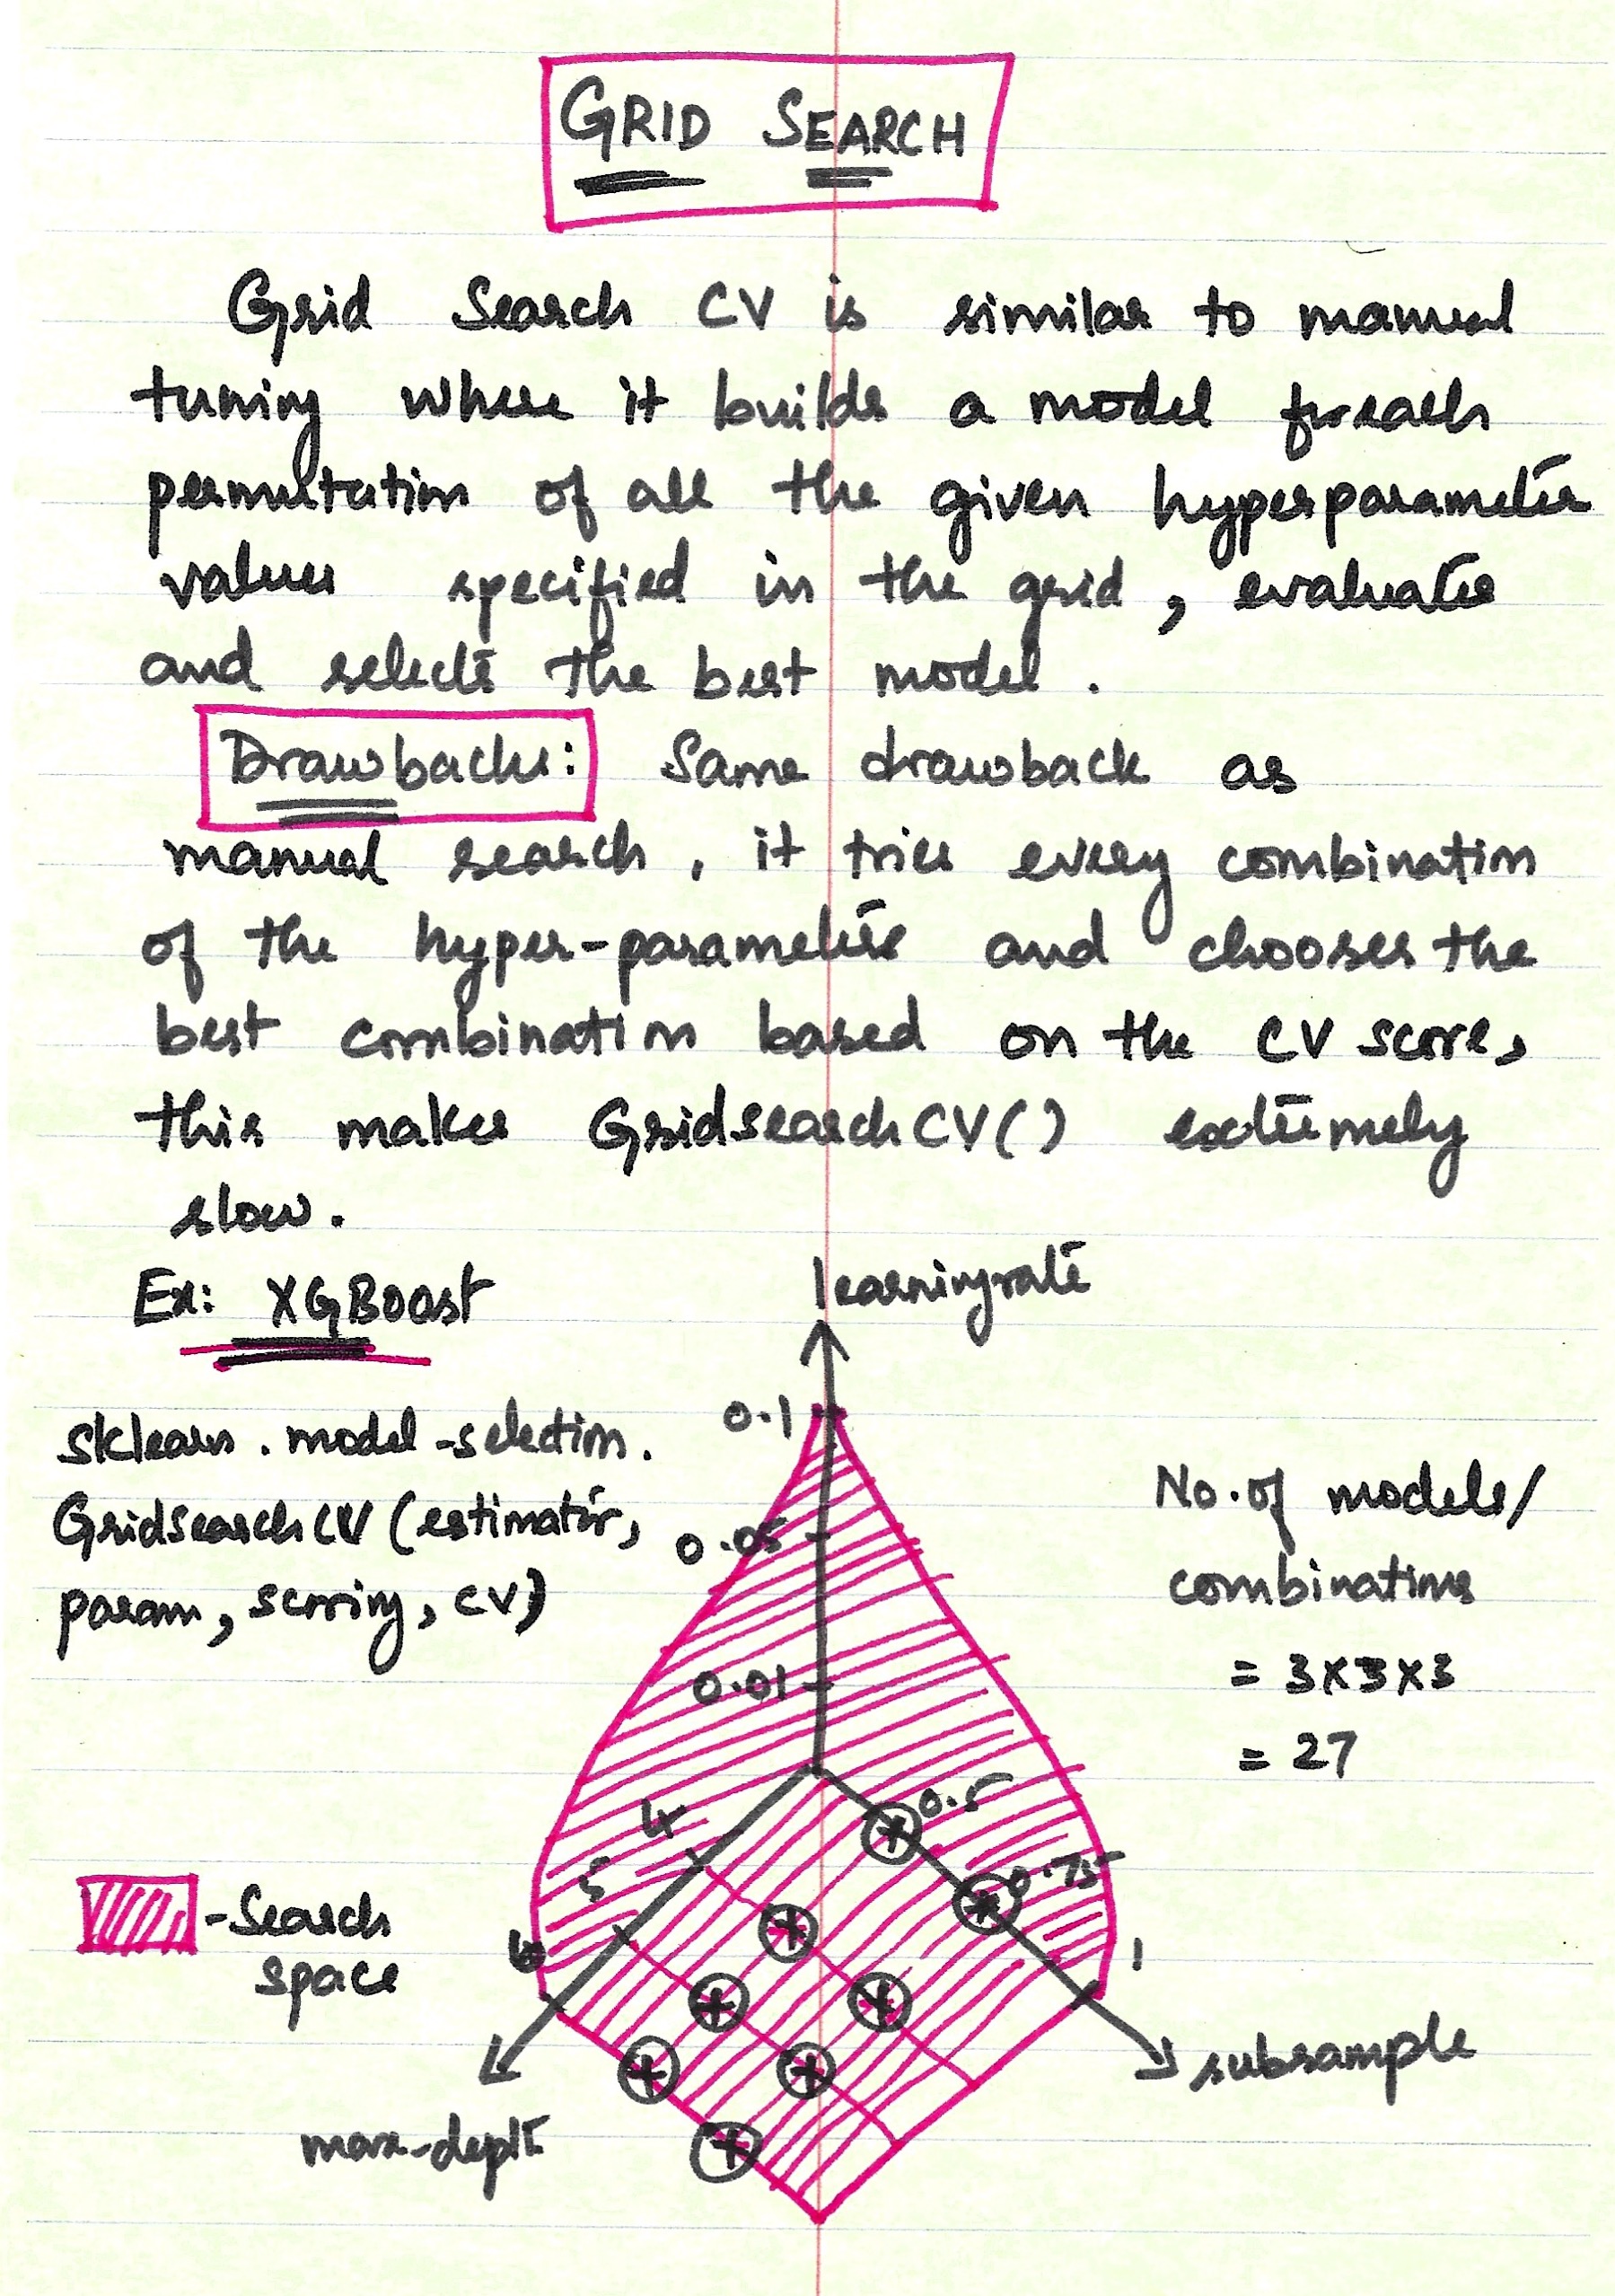 GRID SEARCH
Grid Search CV is similar to manual
tuning where it builds a model foreach
permutation of all the given hyperparameter
values specified in the grid, evaluates
and selects the best model.
Drawbacks: Same drawback as
manual search, it tries every combination
of the hyper-parameters and chooses the
best combination based on the CV score,
this makes GridsearchCV() extremely
slow.
Ex: XGBoost
learningrate
sklearn.model-selection.
GridsearchCV(estimator,
param, scoring, cv)
0.1
0.05
0.01
No. of models/
combinations
= 3x3x3
= 27
4
5
6
0.5
0.75
1
- Search
space
subsample
max-depth